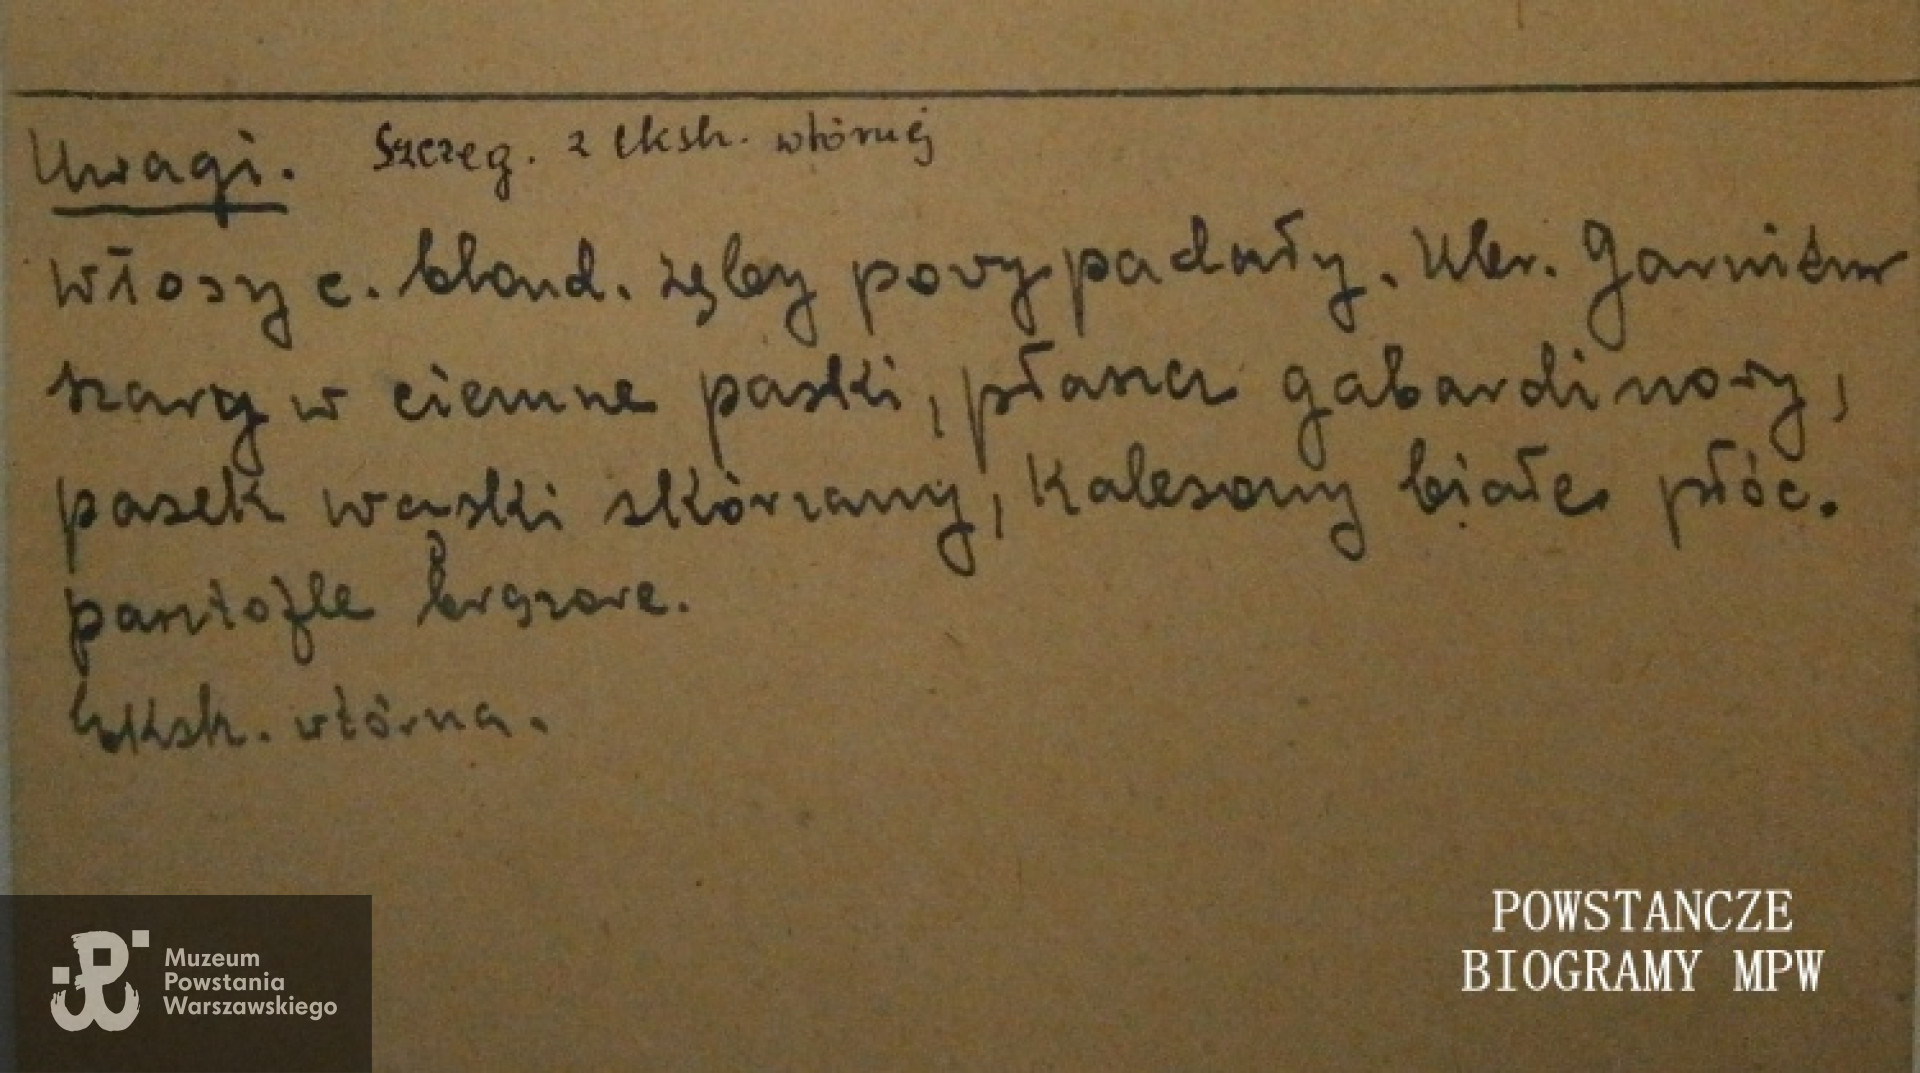 Uwagi. Szczeg. z eksh. wtórnej
włosy c. blond. zęby powypadały. Ubr. Garnitur
szary w ciemne paski, płaszcz gabardinowy,
pasek wąski skórzany, kalesony białe płóc.
pantofle brązowe.
Eksh. wtórna.
Muzeum
Powstania
Warszawskiego
POWSTANCZE
BIOGRAMY MPW